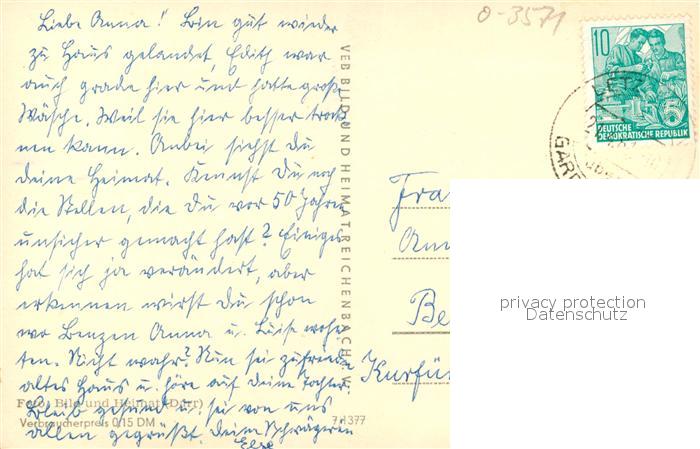 Liebe Anna! Bin gut wieder
zu Haus gelandet, Edith war
auch grade hier und hatte große
Wäsche. Weil sie hier besser trock
nen kann. Anbei siehst Du
deine Heimat. Kennst Du noch
die Stellen, die Du vor 50 Jahren
unsicher gemacht hast? Einiges
hat sich ja verändert, aber
erkennen wirst Du schon
wo Benzen Anna u. Luise wohn
ten. Nicht wahr? Nun sei zufrieden
altes Haus u. höre auf Deine Tochter.
Bleib gesund u. sei von uns
allen gegrüßt. Deine Schwägerin
Else
Foto: Bild und Heimat (Dörr)
Verbraucherpreis 0,15 DM
7 1377
VEB BILD UND HEIMAT REICHENBACH
0-3571
10
5
DEUTSCHE
DEMOKRATISCHE REPUBLIK
LETZ
GARD
Fra
Ann
Be
Kurfü
privacy protection
Datenschutz